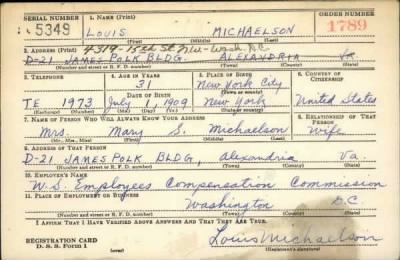 SERIAL NUMBER 1. NAME (Print) ORDER NUMBER
5349 LOUIS MICHAELSON 1789
(First) (Middle) (Last)
4314-15th St. N.W. Wash. D.C.
2. ADDRESS (Print)
D-21 JAMES POLK BLDG. ALEXANDRIA Va.
(Number and street or R. F. D. number) (Town) (County) (State)
3. TELEPHONE 4. AGE IN YEARS 5. PLACE OF BIRTH 6. COUNTRY OF CITIZENSHIP
31 New York City
DATE OF BIRTH (Town or county)
TE 1973 July 1, 1909 New York United States
(Exchange) (Number) (Mo.) (Day) (Yr.) (State or country)
7. NAME OF PERSON WHO WILL ALWAYS KNOW YOUR ADDRESS 8. RELATIONSHIP OF THAT PERSON
Mrs. Mary S. Michaelson Wife
(Mr., Mrs., Miss) (First) (Middle) (Last)
9. ADDRESS OF THAT PERSON
D-21 JAMES POLK BLDG, Alexandria Va.
(Number and street or R. F. D. number) (Town) (County) (State)
10. EMPLOYER'S NAME
U.S. Employees Compensation Commission
11. PLACE OF EMPLOYMENT OR BUSINESS
Washington D.C.
(Number and street or R. F. D. number) (Town) (County) (State)
I AFFIRM THAT I HAVE VERIFIED ABOVE ANSWERS AND THAT THEY ARE TRUE.
REGISTRATION CARD
D. S. S. Form 1 Louis Michaelson
(Registrant's signature)